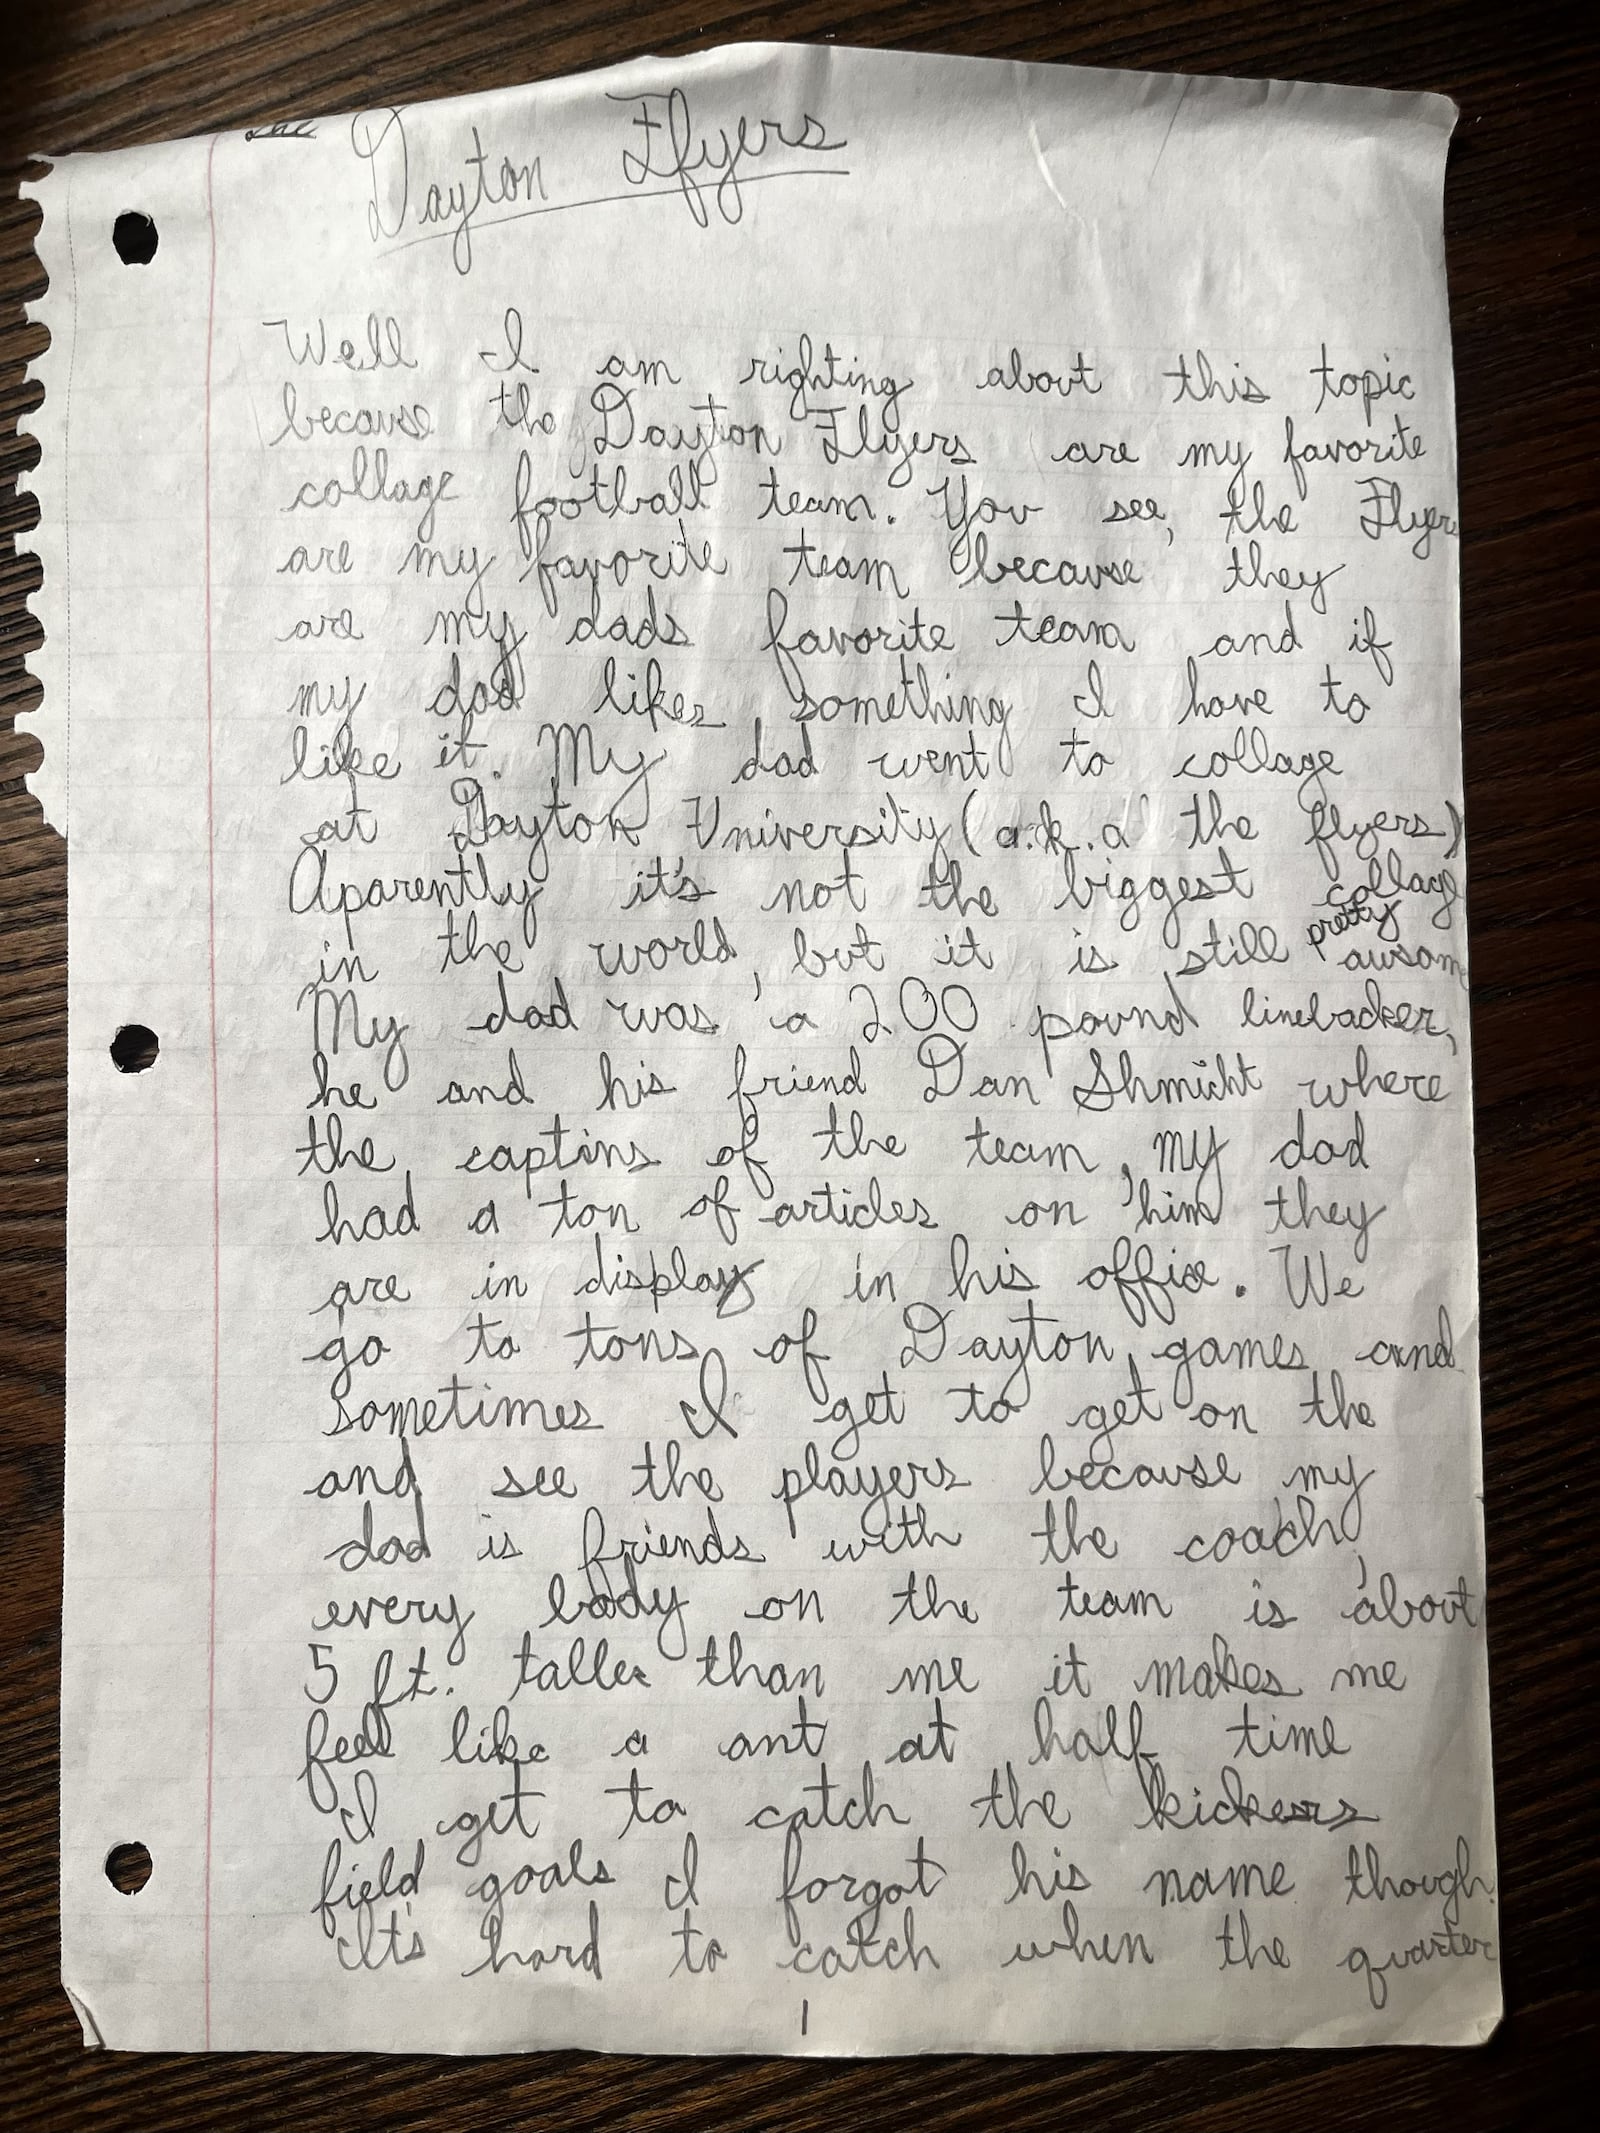 The Dayton Flyers
Well I am righting about this topic
because the Dayton Flyers are my favorite
collage football team. You see, the Flyers
are my favorite team because they
are my dads favorite team and if
my dad likes something I have to
like it. My dad went to collage
at Dayton University (a.k.a the flyers)
Aparently it's not the biggest collage
in the world, but it is still pretty awsome
My dad was a 200 pound linebacker,
he and his friend Dan Shmicht where
the captins of the team, my dad
had a ton of articles on him they
are in display in his office. We
go to tons of Dayton games and
sometimes I get to get on the
and see the players because my
dad is friends with the coach,
every body on the team is about
5 ft. taller than me it makes me
feel like a ant at half time
I get to catch the kickers
field goals I forgot his name though.
It's hard to catch when the quarter
1